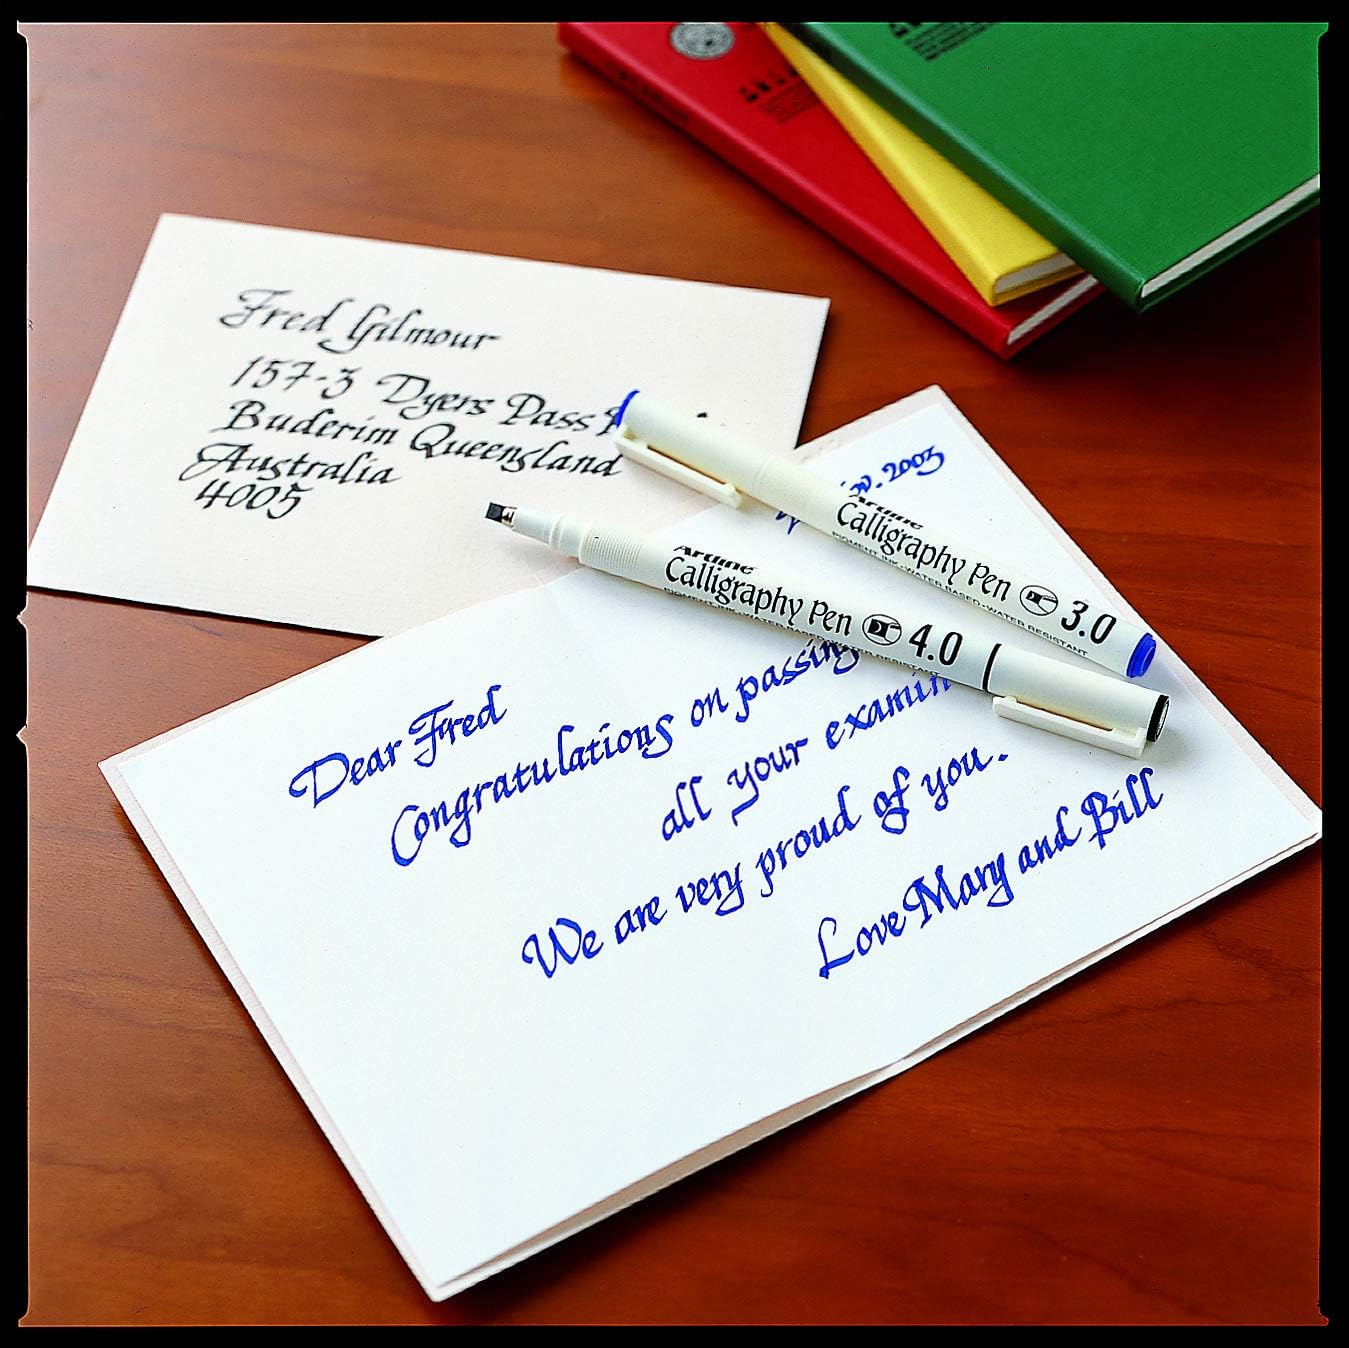 Fred Gilmour
157-3 Dyers Pass
Buderim Queensland
Australia
4005
2003
Dear Fred
Congratulations on passing
all your examin
We are very proud of you.
Love Mary and Bill
Artline
Calligraphy Pen 3.0
PIGMENT INK · WATER BASED · WATER RESISTANT
Artline
Calligraphy Pen 4.0